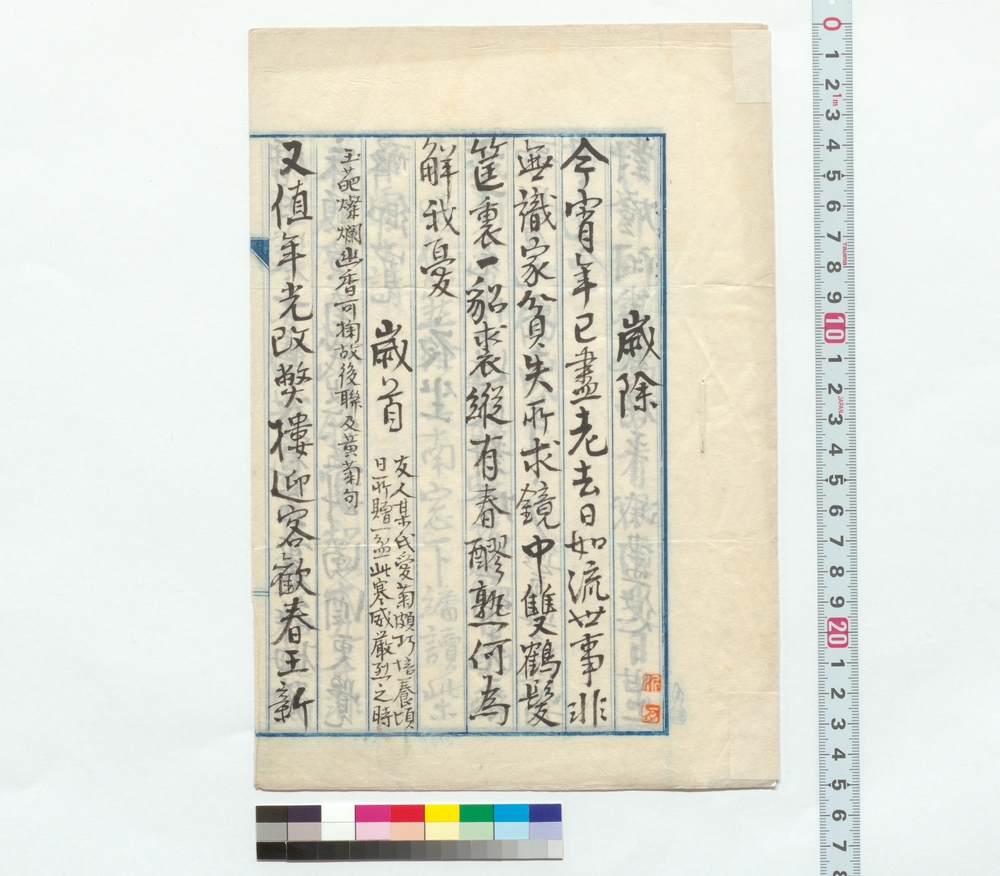 歲除
今宵年已盡老去日如流世事非
無識家貧失所求鏡中雙鶴髮
筐裏一貂裘縱有春醪熟何為
解我憂
歲首
友人某氏愛菊頗巧培養頃
日所贈一盆此寒威嚴烈之時
玉葩燦爛幽香可掬故後聯及黃菊句
又值年光改弊樓迎客歡春王新
0
1
2
1m
3
4
5
6
7
Tajima
8
9
10
1
2
JAPAN
3
4
5
6
7
8
9
20
1
2
3
4
5
6
7
8